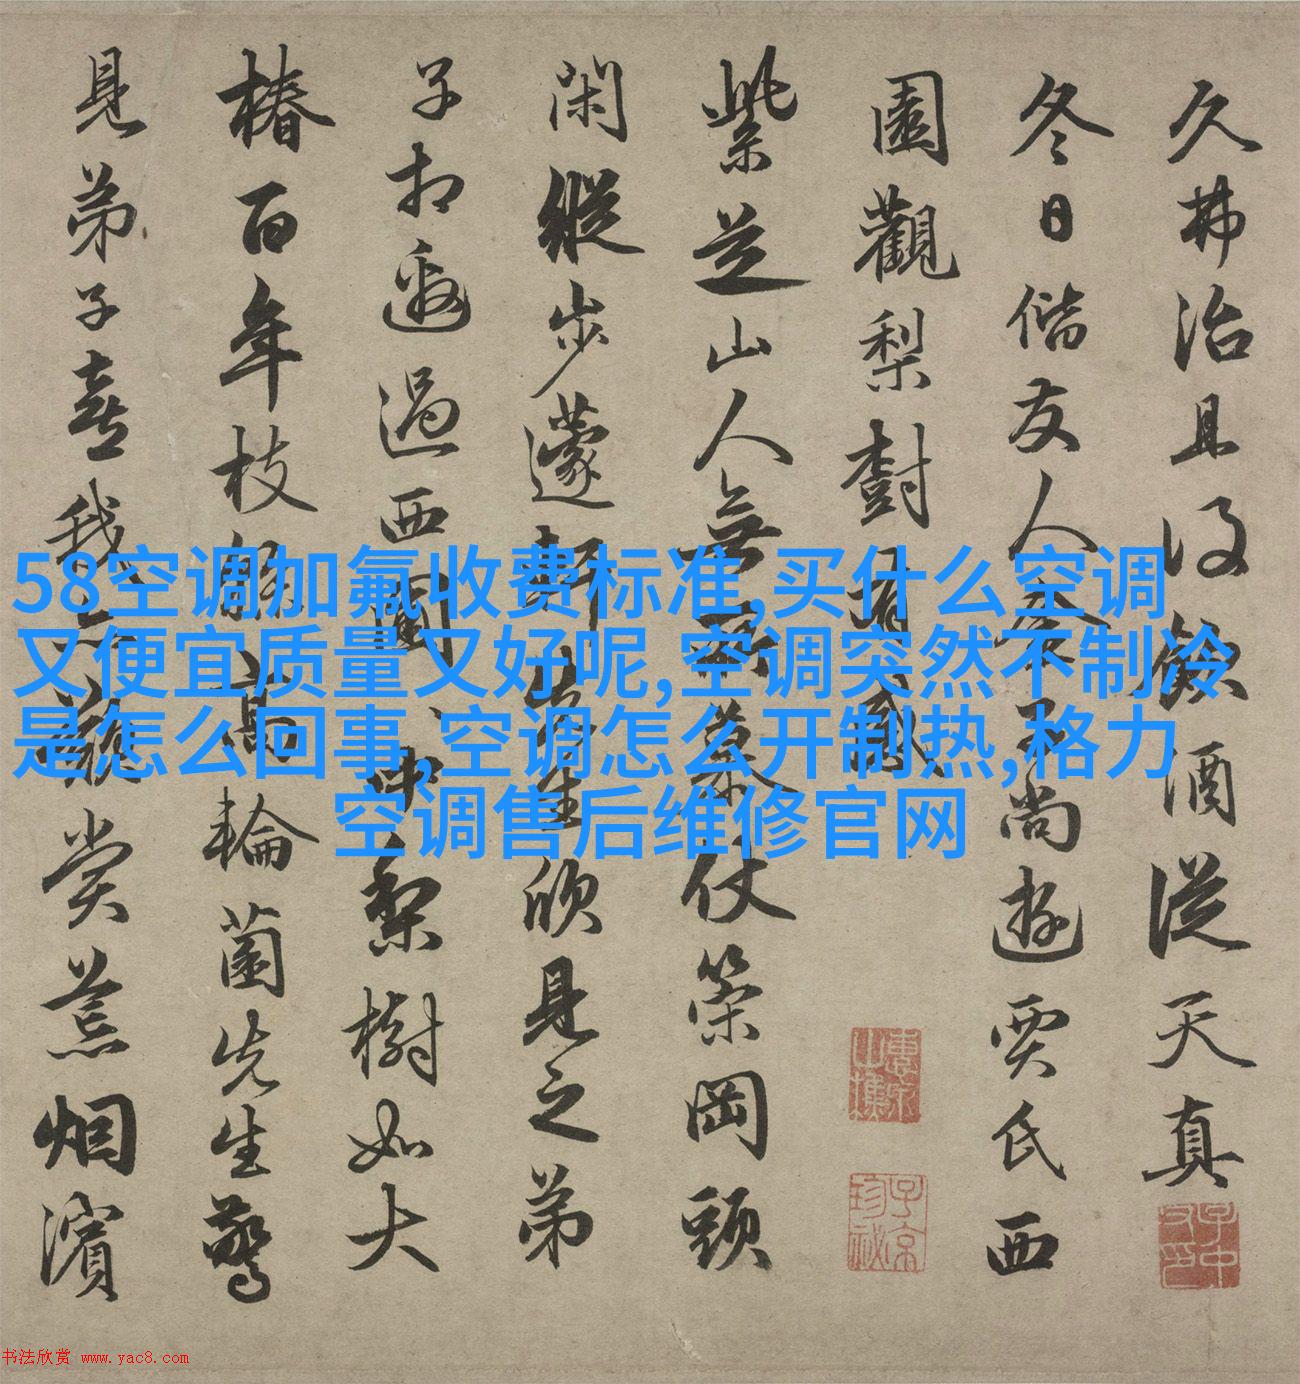 久弗治具設飲酒從天真
冬日偕友人秦子尚遊賈氏西
園觀梨樹有感
紫芝山人無所慕仗策岡頭
閑縱步蘧軒先生欣見之弟
子相邀過西園、中梨樹如大
椿百年枝高輪菌先生驚
見弟子喜我賞荒烟濱
58空调加氟收费标准,买什么空调
又便宜质量又好呢,空调突然不制冷
是怎么回事,空调怎么开制热,格力
空调售后维修官网
书法欣赏 www.yac8.com